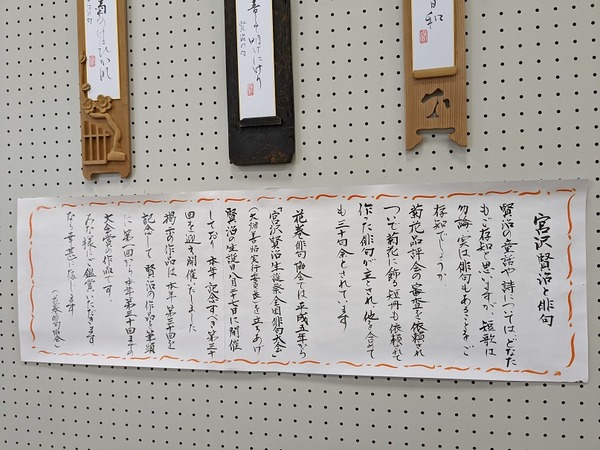 宮沢賢治と俳句
賢治の童話や詩についてはどなた
もご存知と思いますが、短歌は
勿論、実は俳句もあることをご
存知でしょうか
菊花品評会の審査を依頼され
ついで菊花に飾る短冊も依頼されて
作った俳句が主とされ他を含めて
も三十句余とされています
花巻俳句協会では平成五年から
「宮沢賢治生誕祭全国俳句大会」
を立ちあげ
賢治の生誕日八月二十七日に開催
しており 本年 記念すべき第三十
回を迎え開催いたしました
掲示の作品は本年第三十回を
記念して 賢治の作品を筆頭
に 第一回から本年第三十回までの
大会賞の作品です
みな様にご鑑賞いただきます
なら幸甚に存じます
(花巻俳句協会)